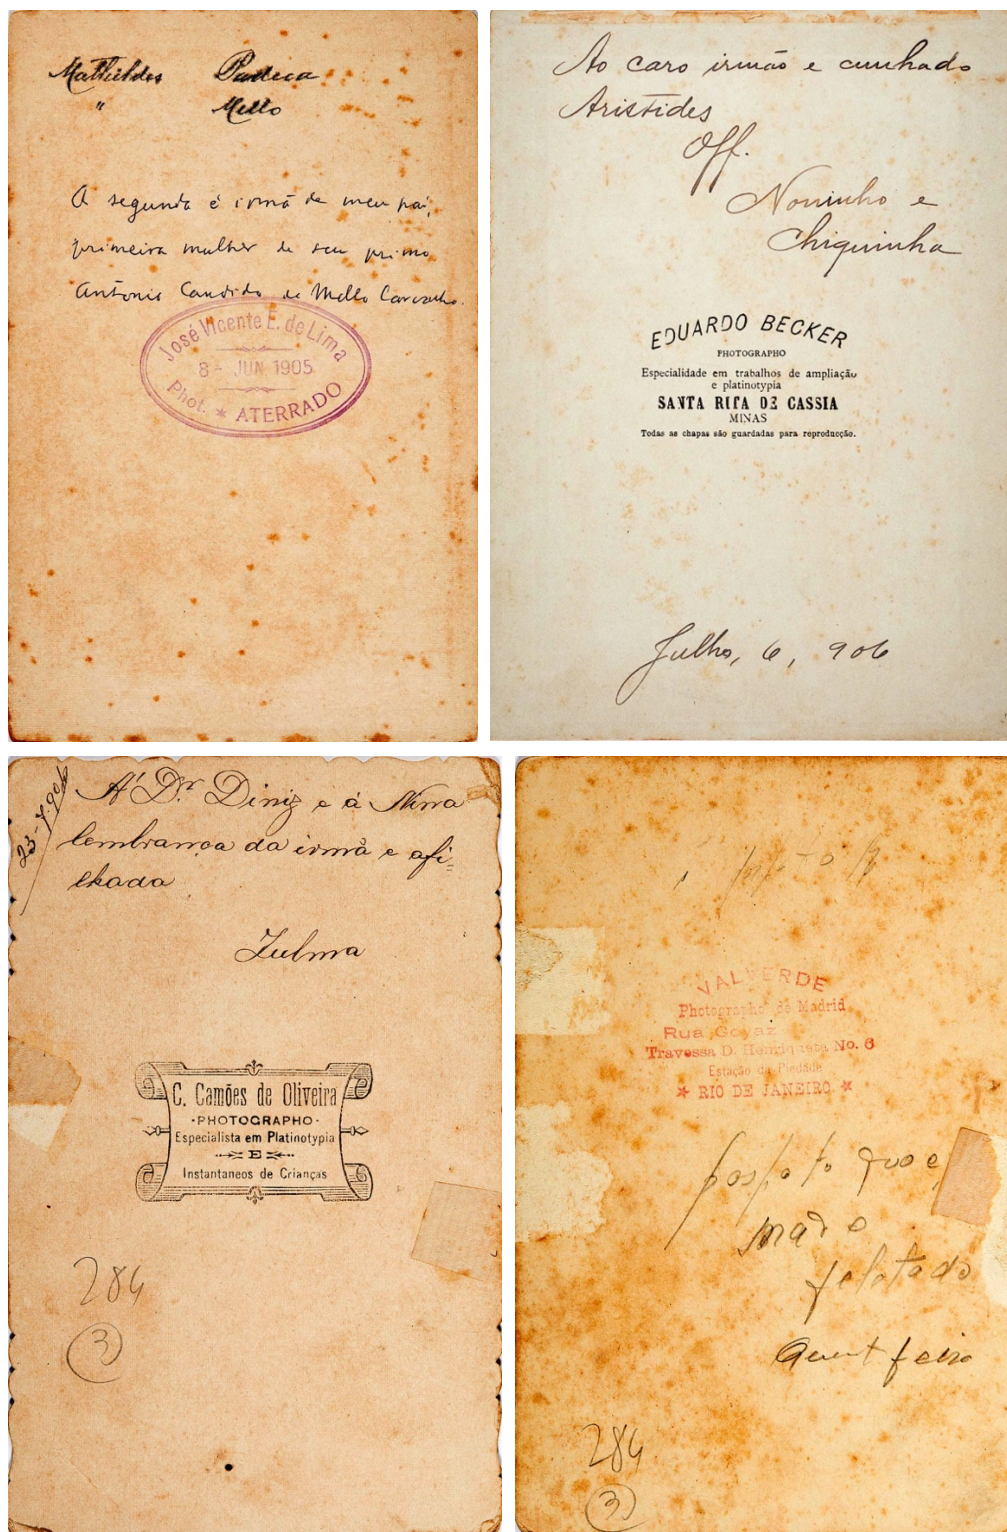 Mathildes
" Mello
A segunda é irmã de meu pai,
primeira mulher de seu primo
Antonio Candido de Mello Carvalho.
José Vicente E. de Lima
8 - JUN 1905
Phot. * ATERRADO
Ao caro irmão e cunhado
Aristides
Off.
Noninho e
Chiquinha
EDUARDO BECKER
PHOTOGRAPHO
Especialidade em trabalhos de ampliação
e platinotypia
SANTA RITA DE CASSIA
MINAS
Todas as chapas são guardadas para reproducção.
Julho, 6, 906
23-7-906
A' Dr. Diniz e á Nina
lembrança da irmã e afi-
lhada
Zulma
C. Camões de Oliveira
·PHOTOGRAPHO·
Especialista em Platinotypia
E
Instantaneos de Crianças
284
3
VALVERDE
Photographo de Madrid
Rua Goyaz
Travessa D. Henriqueta No. 6
Estação da Piedade
* RIO DE JANEIRO *
284
3